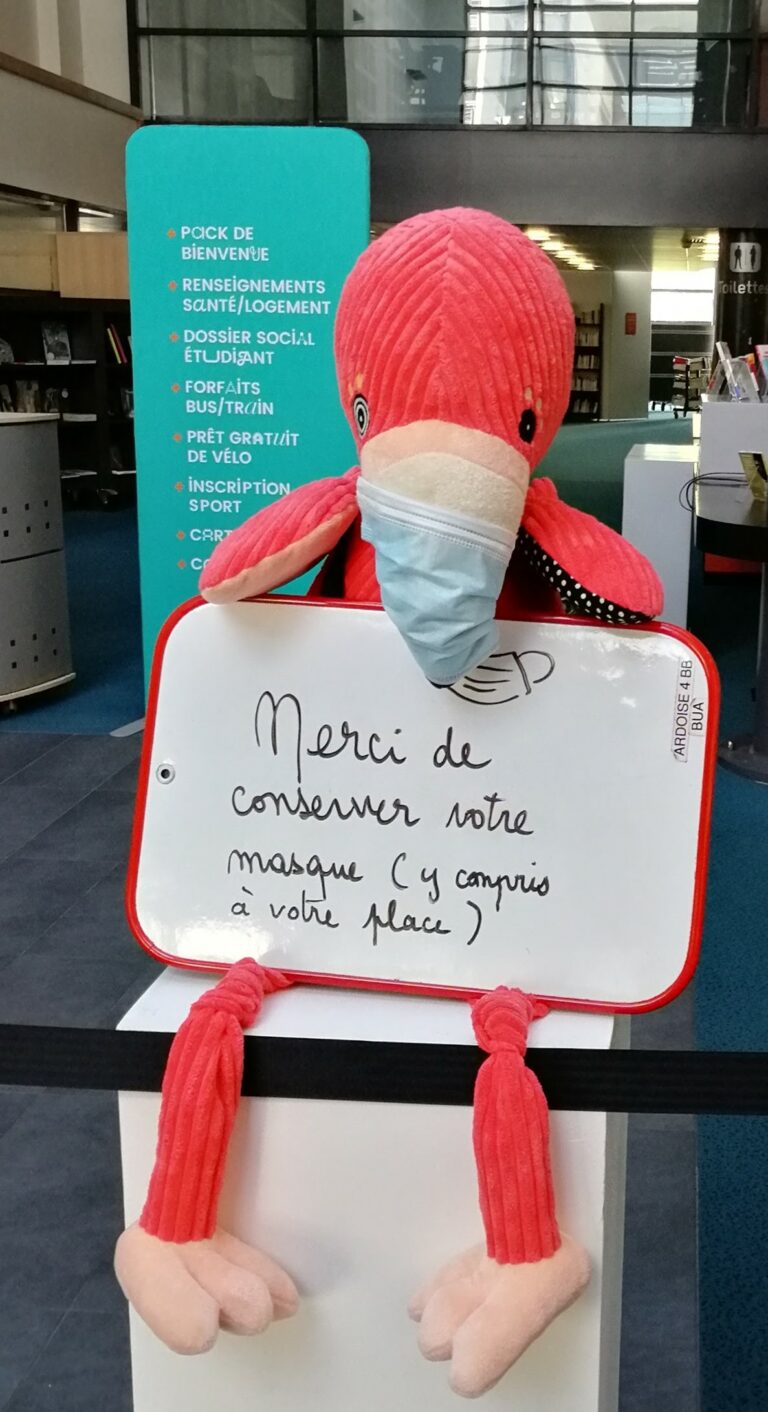 PACK DE
BIENVENUE
RENSEIGNEMENTS
SANTÉ/LOGEMENT
DOSSIER SOCIAL
ÉTUDIANT
FORFAITS
BUS/TRAIN
PRÊT GRATUIT
DE VÉLO
INSCRIPTION
SPORT
Toilettes
Merci de
conserver votre
masque (y compris
à votre place)
ARDOISE 4 BB
BUA